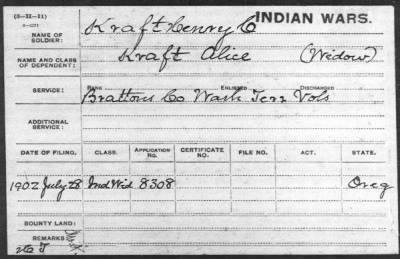 (3-II-11)
INDIAN WARS.
NAME OF SOLDIER: Kraft Henry C
NAME AND CLASS OF DEPENDENT: Kraft Alice (Widow)
SERVICE: RANK ENLISTED DISCHARGED
Brattons Co Wash Terr Vols
ADDITIONAL SERVICE:
DATE OF FILING. CLASS. APPLICATION No. CERTIFICATE NO. FILE NO. ACT. STATE.
1902 July 28 Ind Wid 8308 Oreg
BOUNTY LAND:
REMARKS